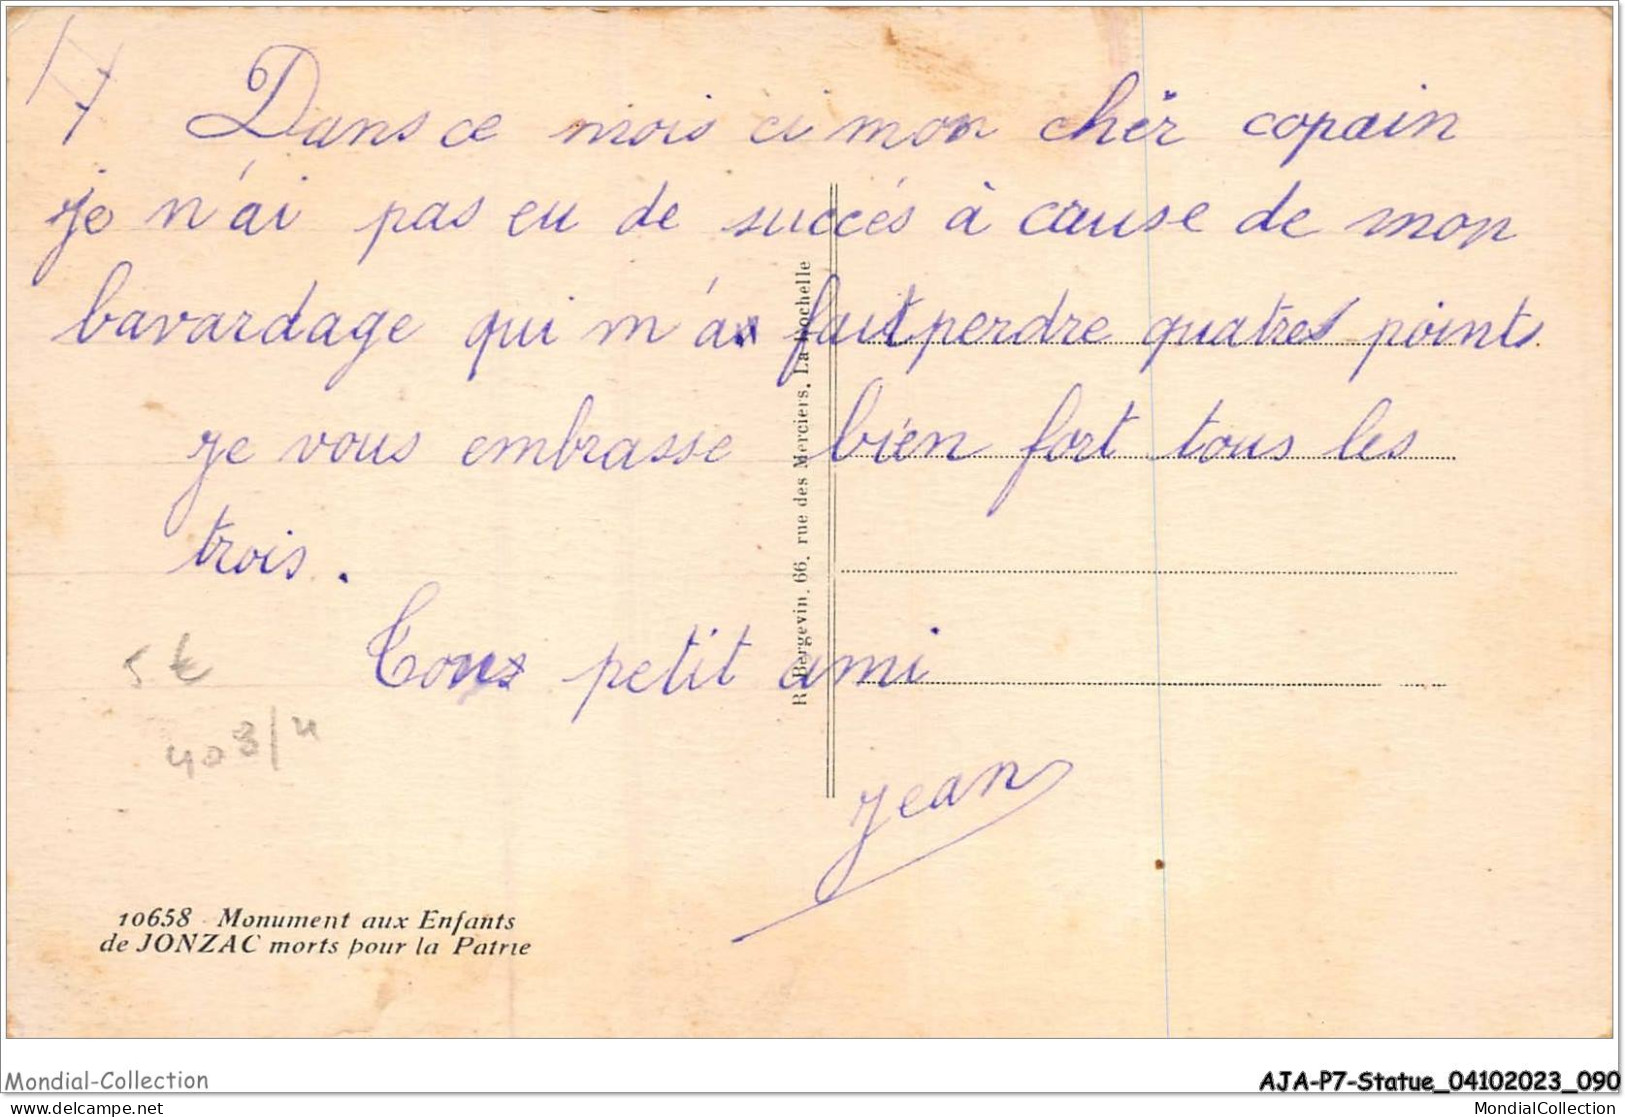 17
Dans ce mois ci mon cher copain
je n'ai pas eu de succés à cause de mon
bavardage qui m'a fait perdre quatres points
je vous embrasse bien fort tous les
trois.
Ton petit ami
Jean
5 €
403/4
R. Bergevin, 66, rue des Merciers, La Rochelle
10658 - Monument aux Enfants
de JONZAC morts pour la Patrie
Mondial-Collection
AJA-P7-Statue_04102023_090
delcampe.net
MondialCollection